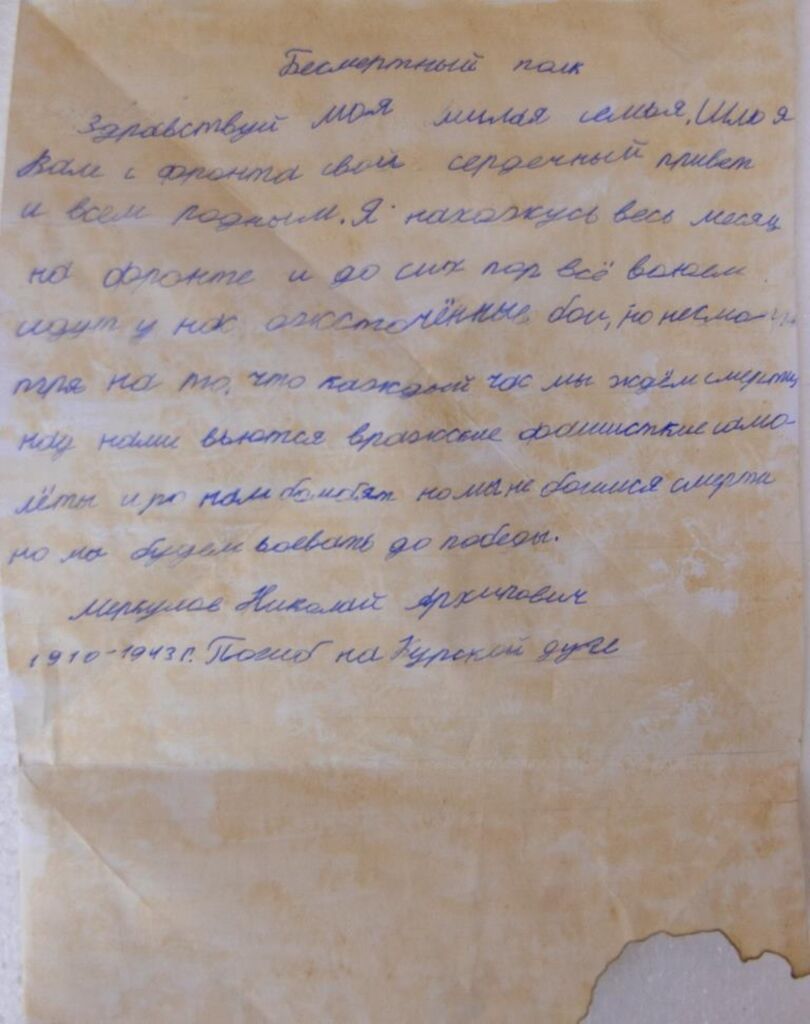 Бесмертный полк
Здравствуй моя милая семья. Шлю я
Вам с фронта свой сердечный привет
и всем родным. Я нахожусь весь месяц
на фронте и до сих пор всё воюем
идут у нас ожесточённые бои, но несмо-
тря на то, что каждый час мы ждём смерти,
над нами вьются вражские фашисткие само-
лёты и по нам бомбят но мы не боимся смерти
но мы будем воевать до победы.
Меркулов Николай Архипович
1910-1943 г. Погиб на Курской дуге